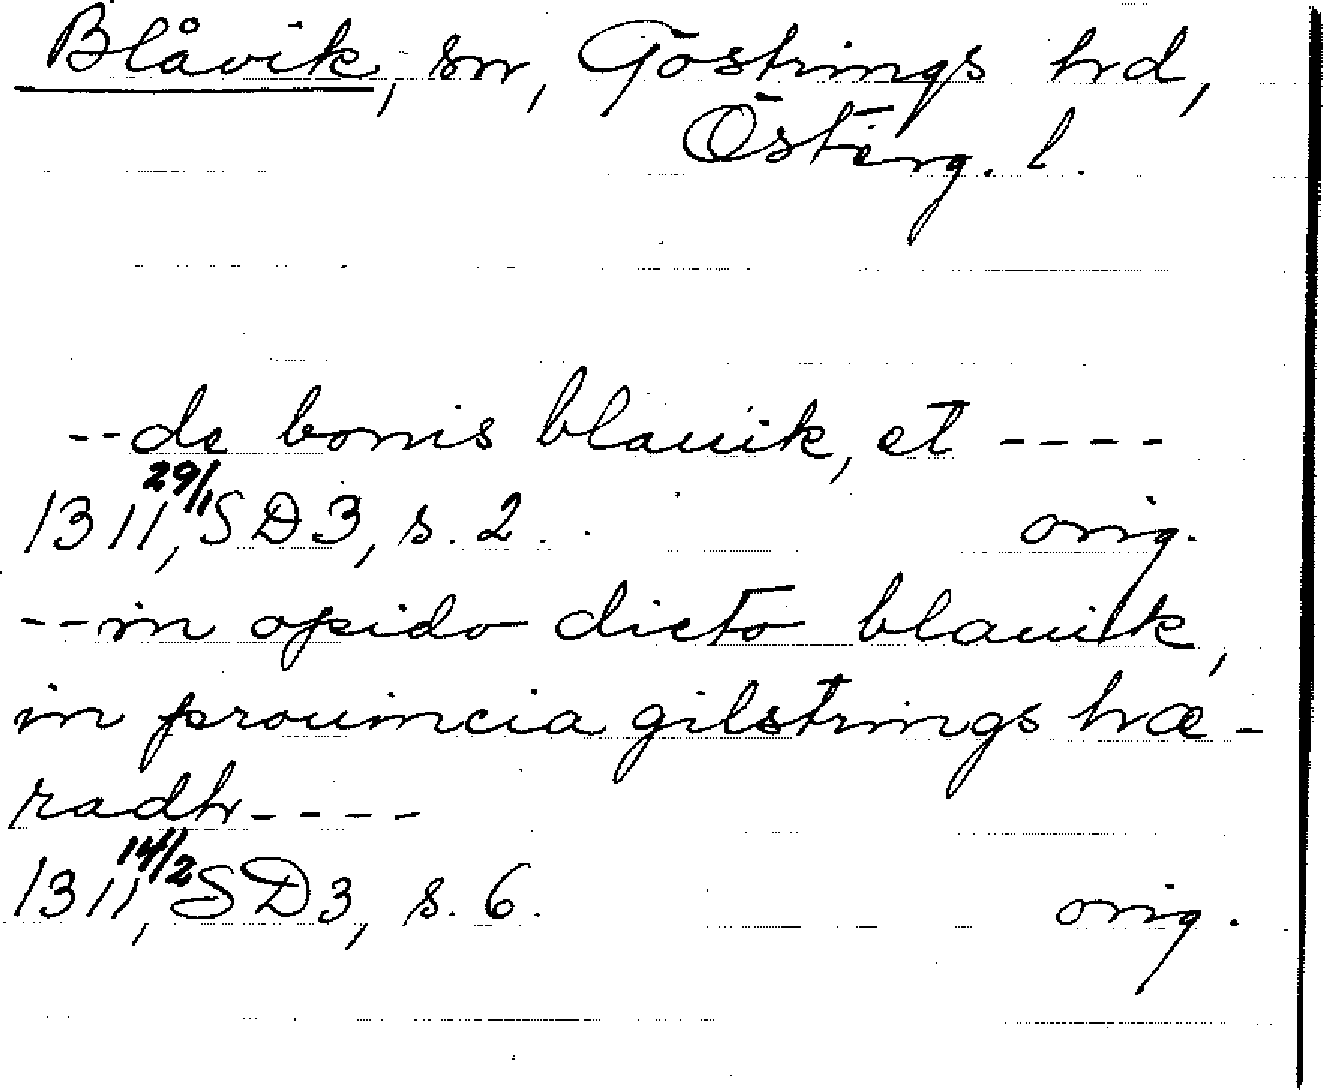 Blåvik, sn, Göstrings hrd,
Österg. l.
--de bonis blauik, et ----
1311 29/1, SD3, s. 2. orig.
--in opido dicto blauik,
in prouincia gilstrings hræ-
radh----
1311 14/2, SD3, s. 6. orig.